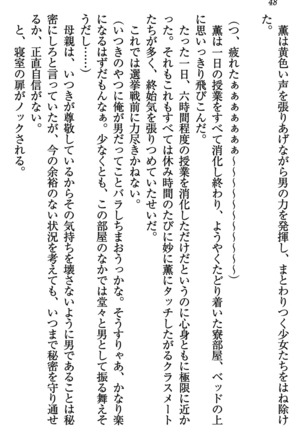 48
　薫は黄色い声を張りあげながら男の力を発揮し、まとわりつく少女たちをはね除け
た。
（つ、疲れたぁぁぁぁぁぁぁ～～～～～～～～～～～～）
　薫は一日の授業をすべて消化し終わり、ようやくたどり着いた寮部屋、ベッドの上
に思いっきり飛びこんだ。
　たった一日、六時間程度の授業を消化しただけだというのに心身ともに極限に近か
った。それもこれもすべては休み時間のたびに妙に薫にタッチしたがるクラスメート
たちが多く、終始気を張りつめていたせいだ。
　これでは選挙戦前に力尽きかねない。
（いつきのやつに俺が男だってことバラしちまおうっかな。そうすりゃあ、かなり楽
になるはずだもんなぁ。少なくとも、この部屋のなかでは堂々と男として振る舞えそ
うだし……）
　母親は、いつきが尊敬しているからその気持ちを壊さないように男であることは秘
密にしろと言っていたが、今の余裕のない状況を考えても、いつまで秘密を守り通せ
るか、正直自信がない。
　と、寝室の扉がノックされる。